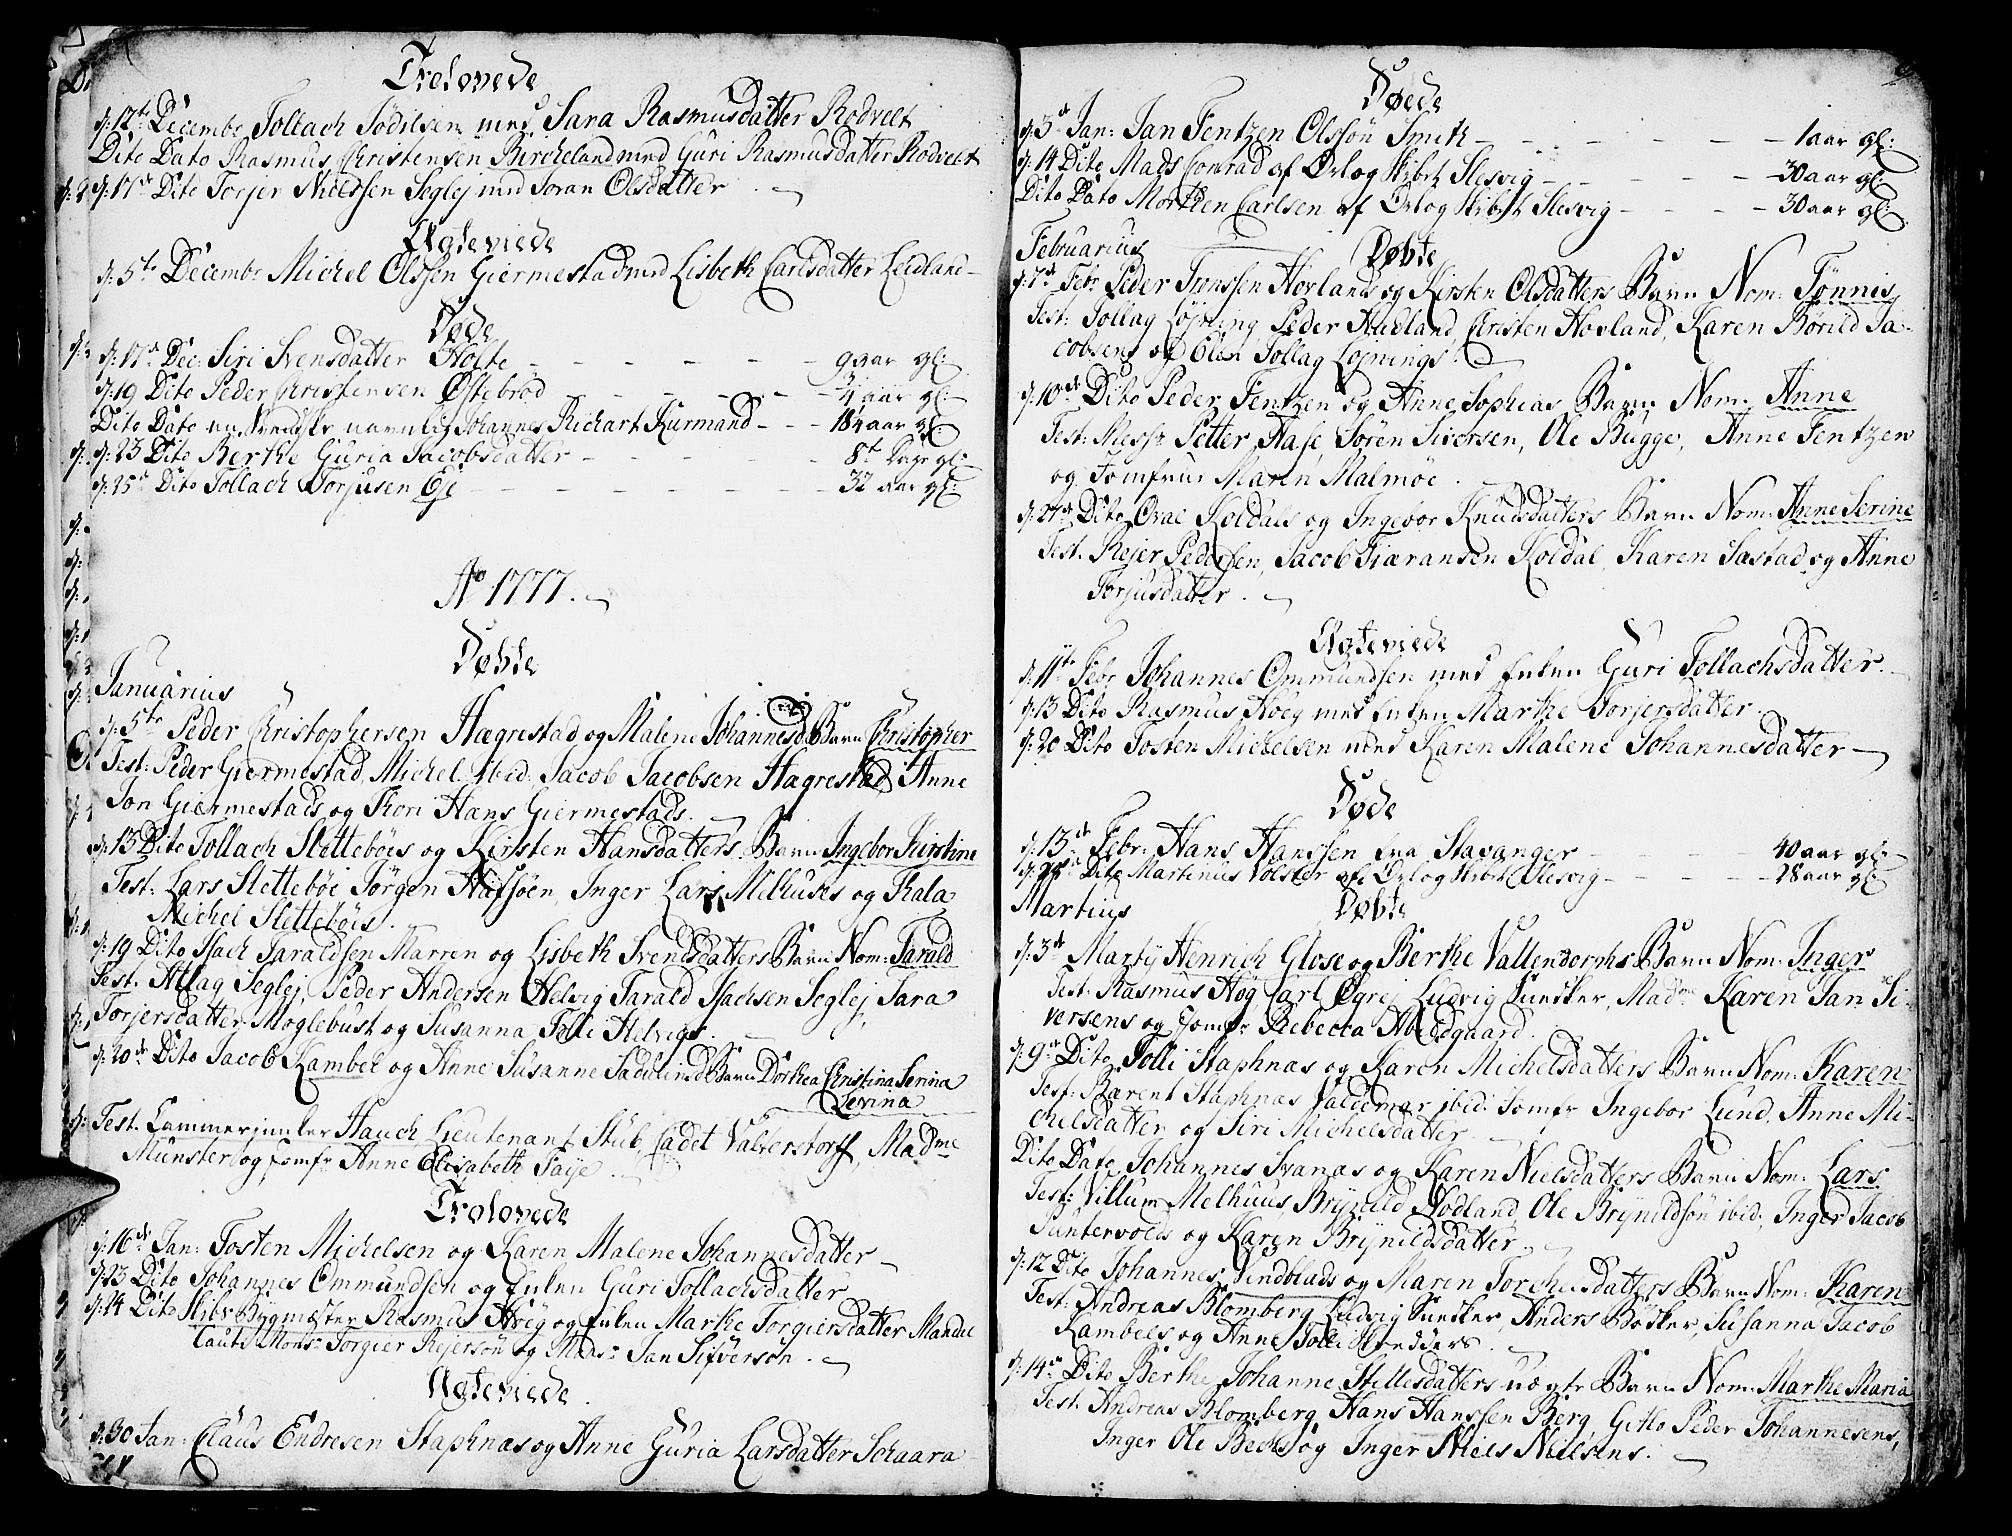 Trolovede
d: 12te Decembr Tollach Tödilsen med Sara Rasmusdatter Rodvelt
Dito Dato Rasmus Christensen Bircheland med Guri Rasmusdatter Rodvelt
d: 17de Dito Torjer Nielssen Seglej med Joran Olsdatter
Ægteviede
d: 5te Decembr Michel Olssøn Giermestad med Lisbeth Carlsdatter Leidland
Døde
d: 17de Dec: Siri Svensdatter Holte - - - 9 aar gl:
d: 19 Dito Peder Christensen Østebröd - - - aar gl:
Dito Dato en Svendsk navnlig Johannes Richart Kurmand - - - aar gl:
d: 23 Dito Berthe Guria Jacobsdatter - - - 8te Dage gl:
d: 25de Dito Tollach Torjusen Eje - - - 32 aar gl:
Ao 1777.
Döbte
Januarius
d: 5te Peder Christophersen Hægrestad og Malene Johannesd: Barn Christopher
Test: Peder Giermestad, Michel ibid: Jacob Jacobsen Hægrestad Anne
Jon Giermestads og Thori Hans Giermestads.
d: 13 Dito Tollach Sletteböes og Kirsten Hansdatters Barn Ingebor Kirstine
Test: Lars Slettebøe Jørgen Hafsøen, Inger Lars Melhuses og Thala
Michel Slettebøes.
d: 19 Dito Isach Taraldsen Marren og Lisbeth Svendsdatters Barn Nom: Tarald
Test. Atlag Seglej, Peder Andersen Helvig Tarald Isachsen Seglej, Sara
Torjersdatter Moglebust og Susanna Tolli Helvigs.
d: 20de Dito Jacob Kambek og Anne Susanne Sadulind: Barn Dorthea Christina Serina
Levina
Test. Cammerjunker Hauch Lieutenant Stub, Cadet Valterstorff, Madme
Münster og Jomfr Anne Elisabeth Faije.
Trolovede
d: 16de Jan: Tosten Michelsen og Karen Malene Johannesdatter
d: 23 Dito Johannes Ommundsen og Enken Guri Tollachsdatter
d: 24 Dito Skibs Bÿgmester Rasmus Høeg og Enken Marthe Torgiersdatter Mandal
Caut: Monsr Torgier Rejersön og Madse Jan Sifversön.
Ægteviede.
d: 30 Jan: Claus Endresen Staphnas og Anne Guria Larsdatter Schaara
Døede
d: 3de Jan: Jan Fentzen Olssön Smith - - - 1 aar gl:
d: 14 Dito Mads Conrad af Orlog Skibet Slesvig - - - 30 aar gl:
Dito Dato Morthen Carlsen af Orlog Skibet Slesvig - - - 30 aar gl:
Februarius
Døbte
d: 7de Febr Peder Tronssen Hovlands og Kirsten Olsdatters Barn Nom: Tönnis
Test: Tollag Løjning, Peder Hadland, Christen Hovland, Karen Börild Ja-
cobsens og Elen Tollag Lojnings.
d: 10de Dito Peder Fentzen og Anne Sophias Barn Nom: Anne
Test: Petter Hase, Søren Siversen, Ole Bugge, Anne Fentzen
og Jomfrue Maren Malmøe.
d: 27de Dito Ovae Koldals og Ingebor Knudsdatters Barn Nom: Anne Serine
Test. Rejer Pedersen, Jacob Tiæransen Koldal, Karen Sæstad og Anne
Torjusdatter.
Ægteviede
d: 11te Febr Johannes Ommundsen med Enken Guri Tollachsdatter.
d: 13 Dito Rasmus Høeg med Enken Marthe Torjersdatter.
d: 20 Dito Tosten Michelsen med Karen Malene Johannesdatter
Døde
d: 13de Febr: Hans Hanssen fra Stavanger - - - 40 aar gl:
Dito Martinus Volster af Orlog Skibet Slesvig - - - 28 aar gl:
Martius
Døbte
d: 3de Martÿ Henrich Glose og Berthe Vallendorphs Barn Nom: Inger
Test: Rasmus Høg, Carl Øgrej, Ludvig Sunsker, Madme Karen Jan Si-
versens og Jomfr Rebecca Abildgaard.
d: 9de Dito Tolli Staphnas og Karen Michelsdatters Barn Nom: Karen
Test: Barent Staphnas Valdemar ibid: Jomfr Ingebor Lund, Anne Mi-
chelsdatter og Siri Michelsdatter.
Dito Dato Johannes Svanas og Karen Nielsdatters Barn Nom: Lars
Test: Villum Melhuus Brÿnild Rödland, Ole Brÿnildsön ibid; Inger Jacob
Puntervolds og Karen Brÿnildsdatter.
d: 12 Dito Johannes Lindblads og Maren Torchelsdatters Barn Nom: Karen
Test: Andreas Blomberg, Ludvig Sunsker, Anders Bödker, Susanna Jacob
Kambecs og Anne Tolli Hredders.
d: 14de Dito Berthe Johanne Stillesdatters uægte Barn Nom: Marthe Maria
Test: Andreas Blomberg, Hans Hanssen Berg, Gitlo Peder Johannesens,
Inger Ole Bechs og Inger Niels Nielsens.